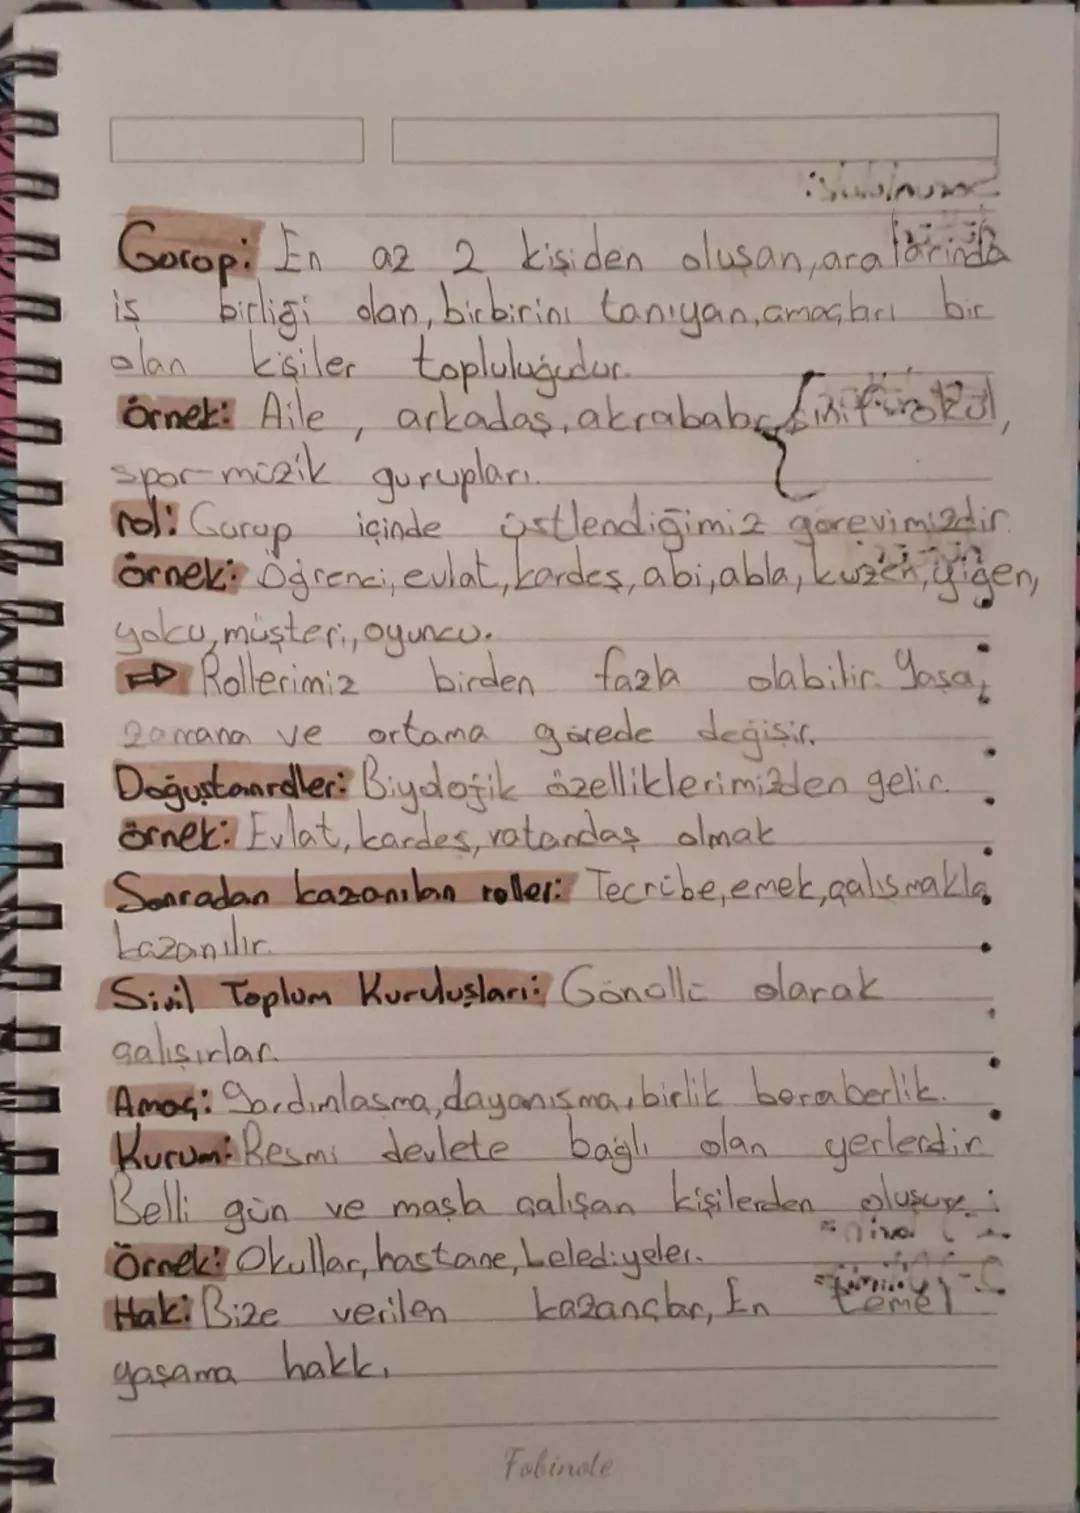 Gorop: En az 2 kişiden oluşan, aralarında
iş birliği olan, birbirini tanıyan, amaçları bir
olan kişiler topluluğudur.
Örnek: Aile, arkadaş, akrabalar, sınıf, okul,
spor-müzik gurupları.
rol: Gurup içinde üstlendiğimiz görevimizdir.
Örnek: Öğrenci, evlat, kardeş, abi, abla, kuzen, yiğen,
yolcu, müşteri, oyuncu.
⇨ Rollerimiz birden fazla olabilir. Yaşa,
zamana ve ortama görede değişir.
Doğuştan roller: Biyolojik özelliklerimizden gelir.
Örnek: Evlat, kardeş, vatandaş olmak
Sonradan kazanılan roller: Tecrübe, emek, çalışmakla
kazanılır.
Sivil Toplum Kuruluşları: Gönüllü olarak
çalışırlar.
Amaç: Yardımlaşma, dayanışma, birlik beraberlik.
Kurum: Resmi devlete bağlı olan yerlerdir
Belli gün ve maaşla çalışan kişilerden oluşur.
Örnek: Okullar, hastane, belediyeler.
Hak: Bize verilen kazançlar, En temel
yaşama hakkı
Fobinote